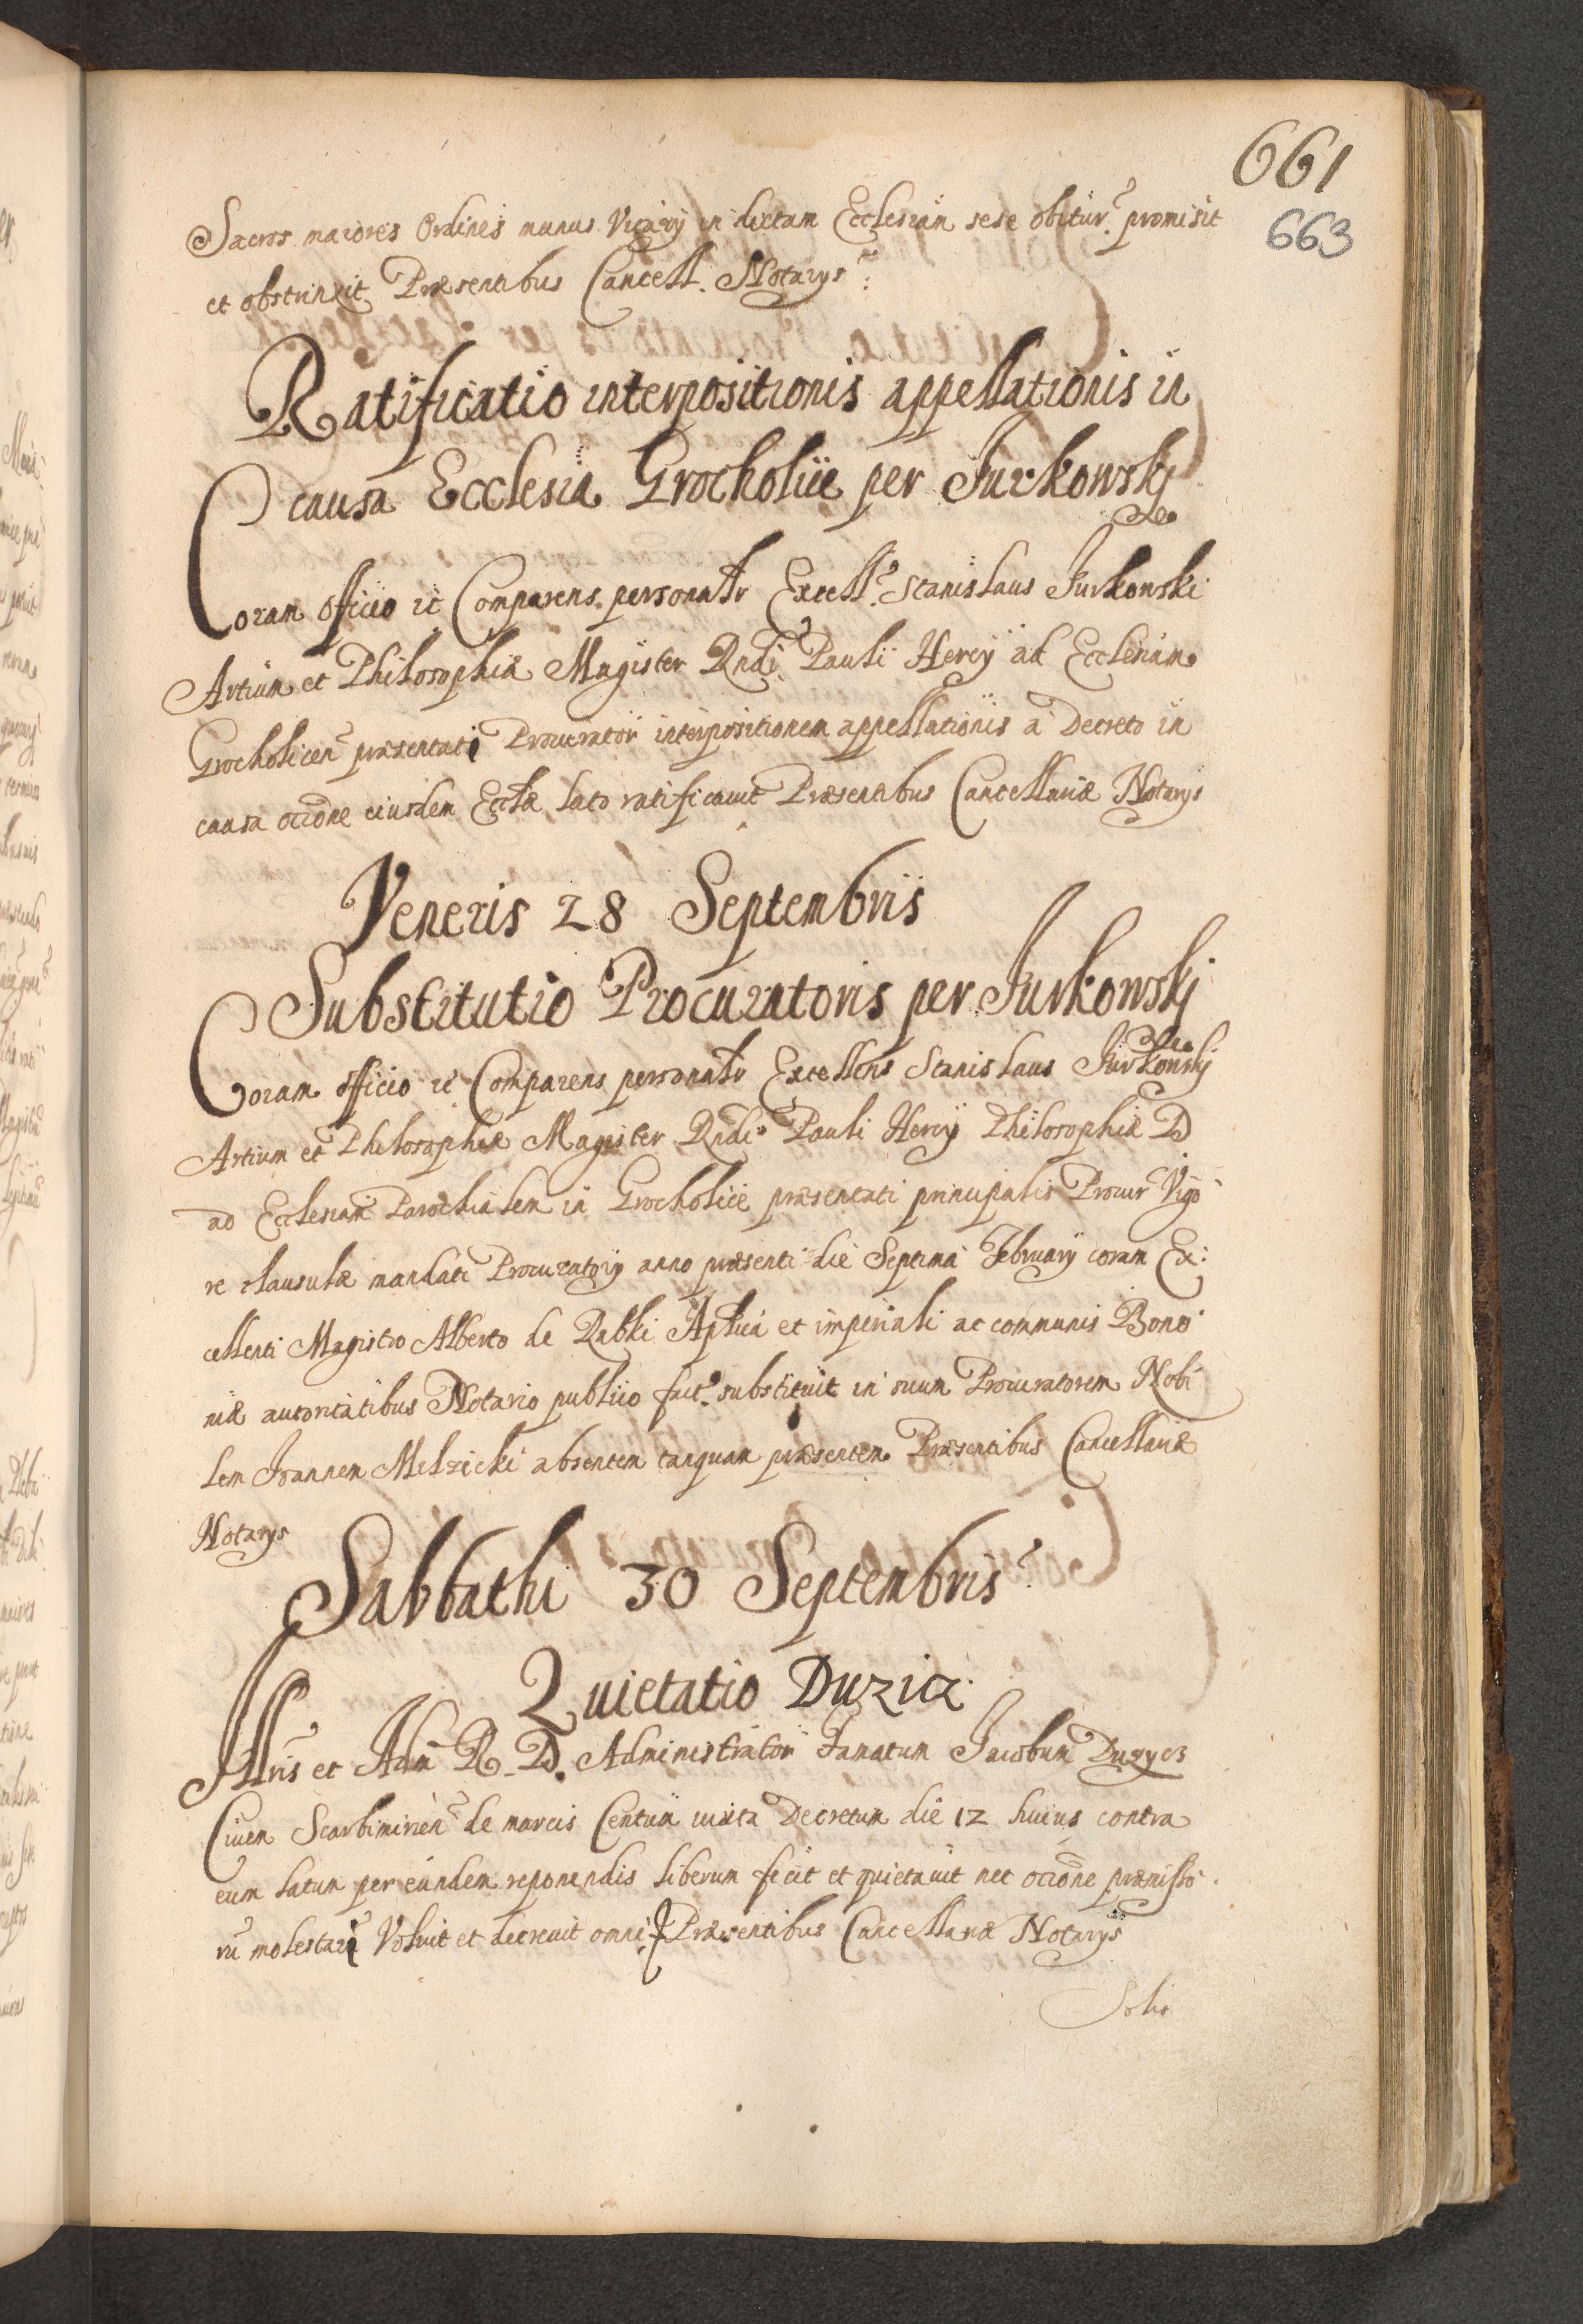 661
663
Sacros maiores Ordines munus Vicarij in dictam Ecclesiam sese obitur. promisit
et obstrinxit Præsentibus Cancell. Notarijs
Ratificatio interpositionis appellationis in
causa Ecclesia Grocholice per Jurkowskj
Coram officio ic Comparens personalr Excell. Stanislaus Jurkowski
Artium et Philosophiæ Magister Rndi Pauli Hercij ad Ecclesiam
Grocholicen præsentati Procurator interpositionem appellationis a Decreto in
causa occõne eiusdem Ecclæ lato ratificauit Præsentibus Cancellariæ Notarijs
Veneris 28 Septembris
Substitutio Procuratoris per Jurkowskj
Coram officio ic Comparens personalr Excellens Stanislaus Jurkowskj
Artium et Philosophiæ Magister Rndi Pauli Hercij Philosophiæ D
ad Ecclesiam Parochialem in Grocholice præsentati principalis Procur Vigo
re clausulæ mandati Procuratorij anno præsenti die Septima February coram Ex:
cellenti Magistro Alberto de Rabki Aplica et imperiali ac communis Bono
niæ autoritatibus Notario publico fact. substituit in suum Procuratorem Nobi
lem Joannem Melzicki absentem tanquam præsentem Præsentibus Cancellariæ
Notarijs
Sabbathi 30 Septembris
Quietatio Duzicz
Illris et Adm R. D. Administrator Famatum Jacobum Duzycz
Ciuem Scarbimirien de marcis Centum iuxta Decretum die 12 huius contra
eum latum per eundem reponendis liberum fecit et quietauit nec occõne præmisso
rũ molestari Voluit et decreuit omni Præsentibus Cancellariæ Notarijs